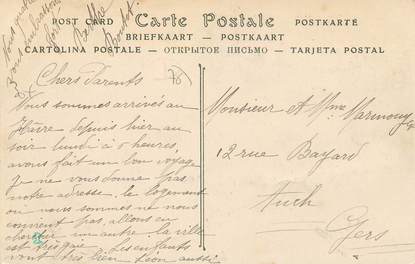 POST CARD Carte Postale POSTKARTE
BRIEFKAART — POSTKAART
CARTOLINA POSTALE — ОТКРЫТОЕ ПИСЬМО — TARJETA POSTAL
Chers Parents
Nous sommes arrivés au
Havre depuis hier au
soir lundi à 6 heures,
avons fait un bon voyage
Je ne vous donne pas
notre adresse, le logement
ou nous sommes ne nous
convient pas, allons en
chercher un autre. la ville
est très gaie. Les enfants
vont très bien Léon aussi
Vous quatre
vous embrassons
fort
Monsieur et Mme Marmouget
12 rue Bayard
Auch
Gers